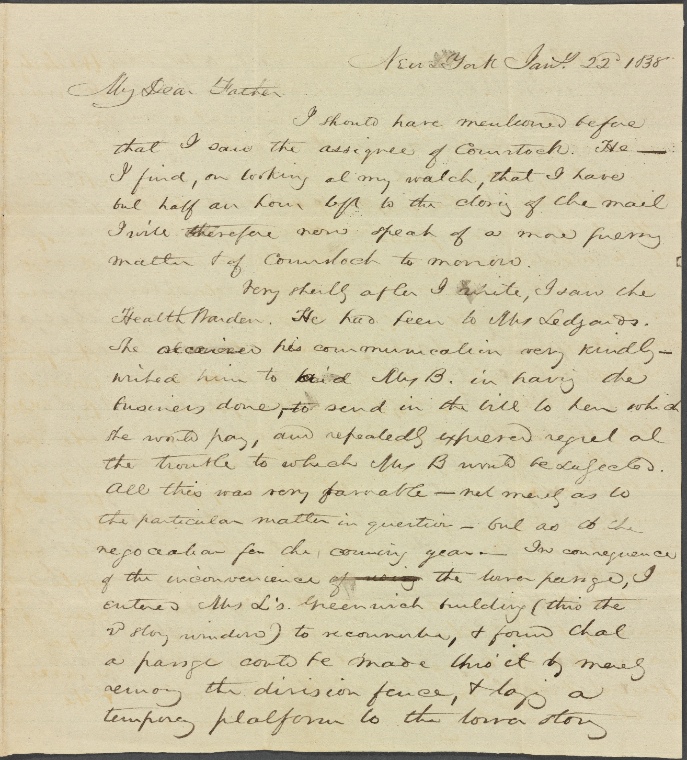 New York Jany. 22d 1838
My Dear Father
I should have mentioned before
that I saw the assignee of Comstock. He —
I find, on looking at my watch, that I have
but half an hour left to the closing of the mail
I will therefore now speak of a more
matter & of Comstock to morrow.
Very shortly after I write, I saw the
Health Warden. He had been to Mrs Ledyards.
She received his communication very kindly —
wished him to Mrs B. in having the
business done, to send in the bill to her which
she would pay, and repeatedly expressed regret at
the trouble to which Mrs B would be subjected.
All this was very favorable — not merely as to
the particular matter in question — but as to the
negociation for the coming year. — In consequence
of the inconvenience of using the lower passage, I
entered Mrs L's. Greenwich building (thro the
2d story window) to reconnoitre, & found that
a passage could be made thro' it by merely
removing the division fence, & laying a
temporary platform to the lower story